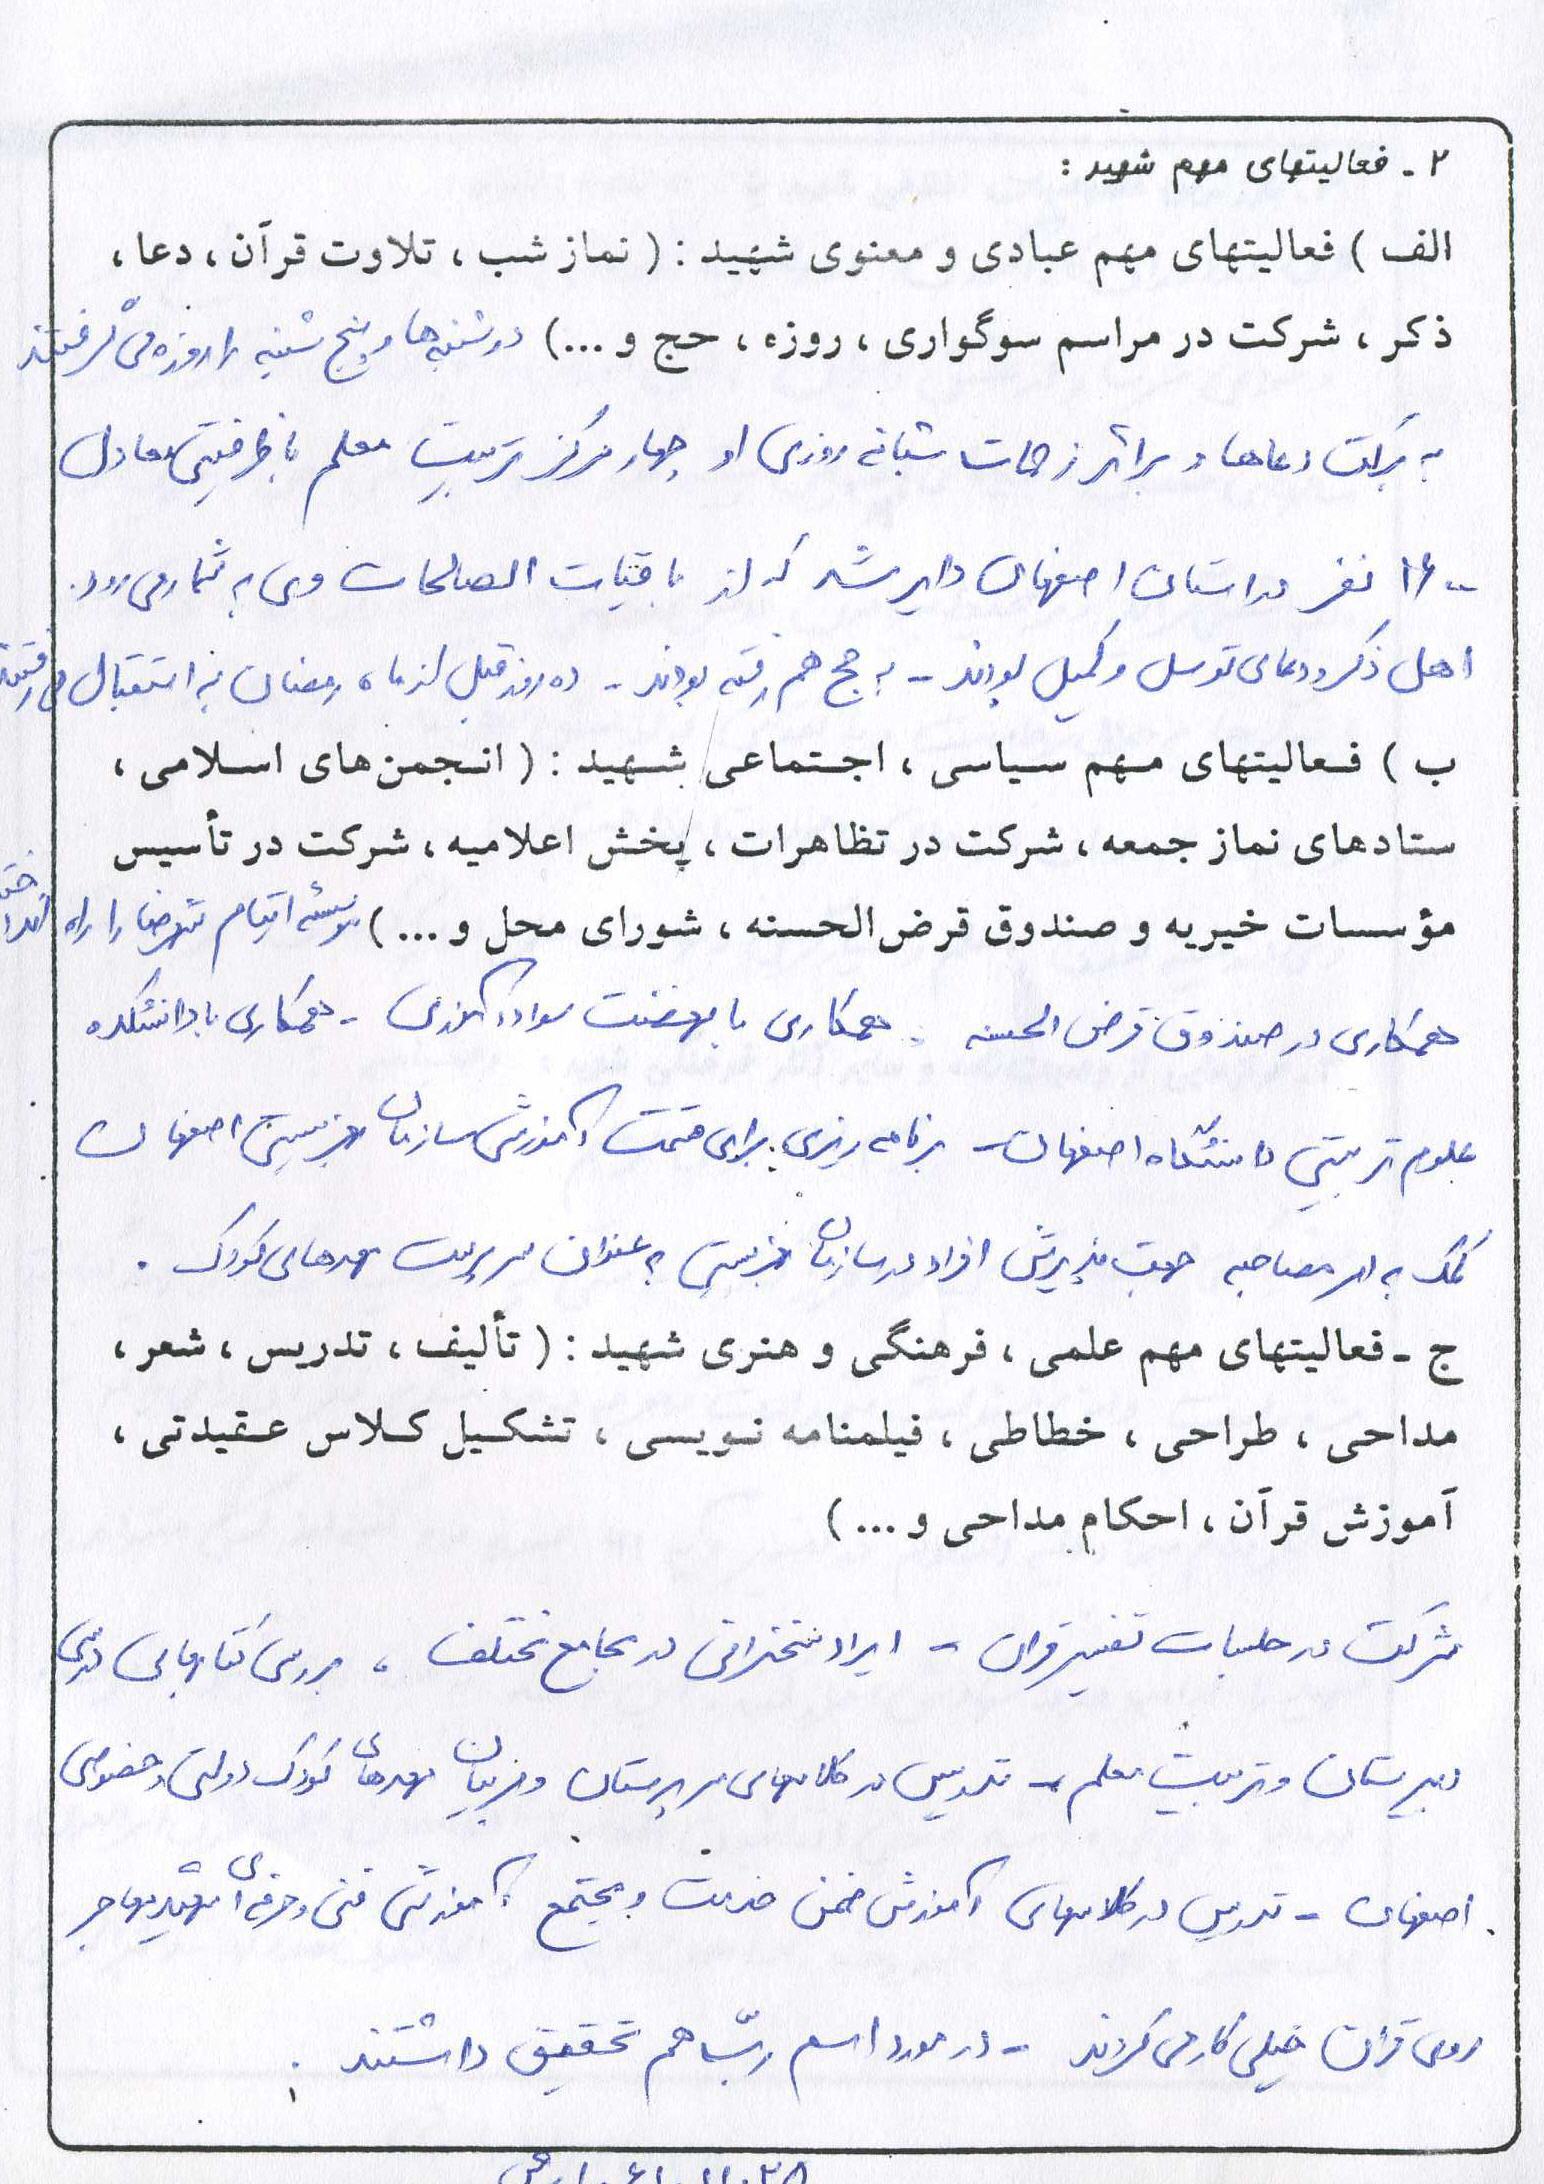 ۲ ـ فعالیتهای مهم شهید :
الف ) فعالیتهای مهم عبادی و معنوی شهید : ( نماز شب ، تلاوت قرآن ، دعا ،
ذکر ، شرکت در مراسم سوگواری ، روزه ، حج و ...) دوشنبه‌ها و پنج شنبه را روزه می گرفتند
به برکت دعاها و بر اثر زحمات شبانه روزی او چهار مرکز تربیت معلم با ظرفیتی معادل
۱۶۰۰ نفر در استان اصفهان دایر شد که از باقیات الصالحات وی به شمار می رود.
اهل ذکر و دعای توسل و کمیل بودند - به حج هم رفته بودند - ده روز قبل از ماه رمضان به استقبال می رفتند
ب ) فعالیتهای مهم سیاسی ، اجتماعی شهید : ( انجمن‌های اسلامی ،
ستادهای نماز جمعه ، شرکت در تظاهرات ، پخش اعلامیه ، شرکت در تأسیس
مؤسسات خیریه و صندوق قرض‌الحسنه ، شورای محل و ... ) موسسه ایتام شهرضا را راه
همکاری در صندوق قرض الحسنه . همکاری با نهضت سوادآموزی - همکاری با دانشکده
علوم تربیتی دانشگاه اصفهان - برنامه ریزی برای قسمت آموزش سازمان بهزیستی اصفهان
کمک به امر مصاحبه جهت پذیرش افراد در سازمان بهزیستی به عنوان سرپرست مهدهای کودک .
ج ـ فعالیتهای مهم علمی ، فرهنگی و هنری شهید : ( تألیف ، تدریس ، شعر ،
مداحی ، طراحی ، خطاطی ، فیلمنامه نویسی ، تشکیل کلاس عقیدتی ،
آموزش قرآن ، احکام مداحی و ... )
شرکت در جلسات تفسیر قران - ایراد سخنرانی در مجامع مختلف ، بررسی کتابهای درسی
دبیرستان و تربیت معلم - تدریس در کلاسهای سرپرستان و مربیان مهدهای کودک دولتی و خصوصی
اصفهان - تدریس در کلاسهای آموزش ضمن خدمت و مجتمع آموزش فنی و حرفه ای شهید مهاجر
روی قران خیلی کار می کردند - در مورد اسم ربّ هم تحقیق داشتند .